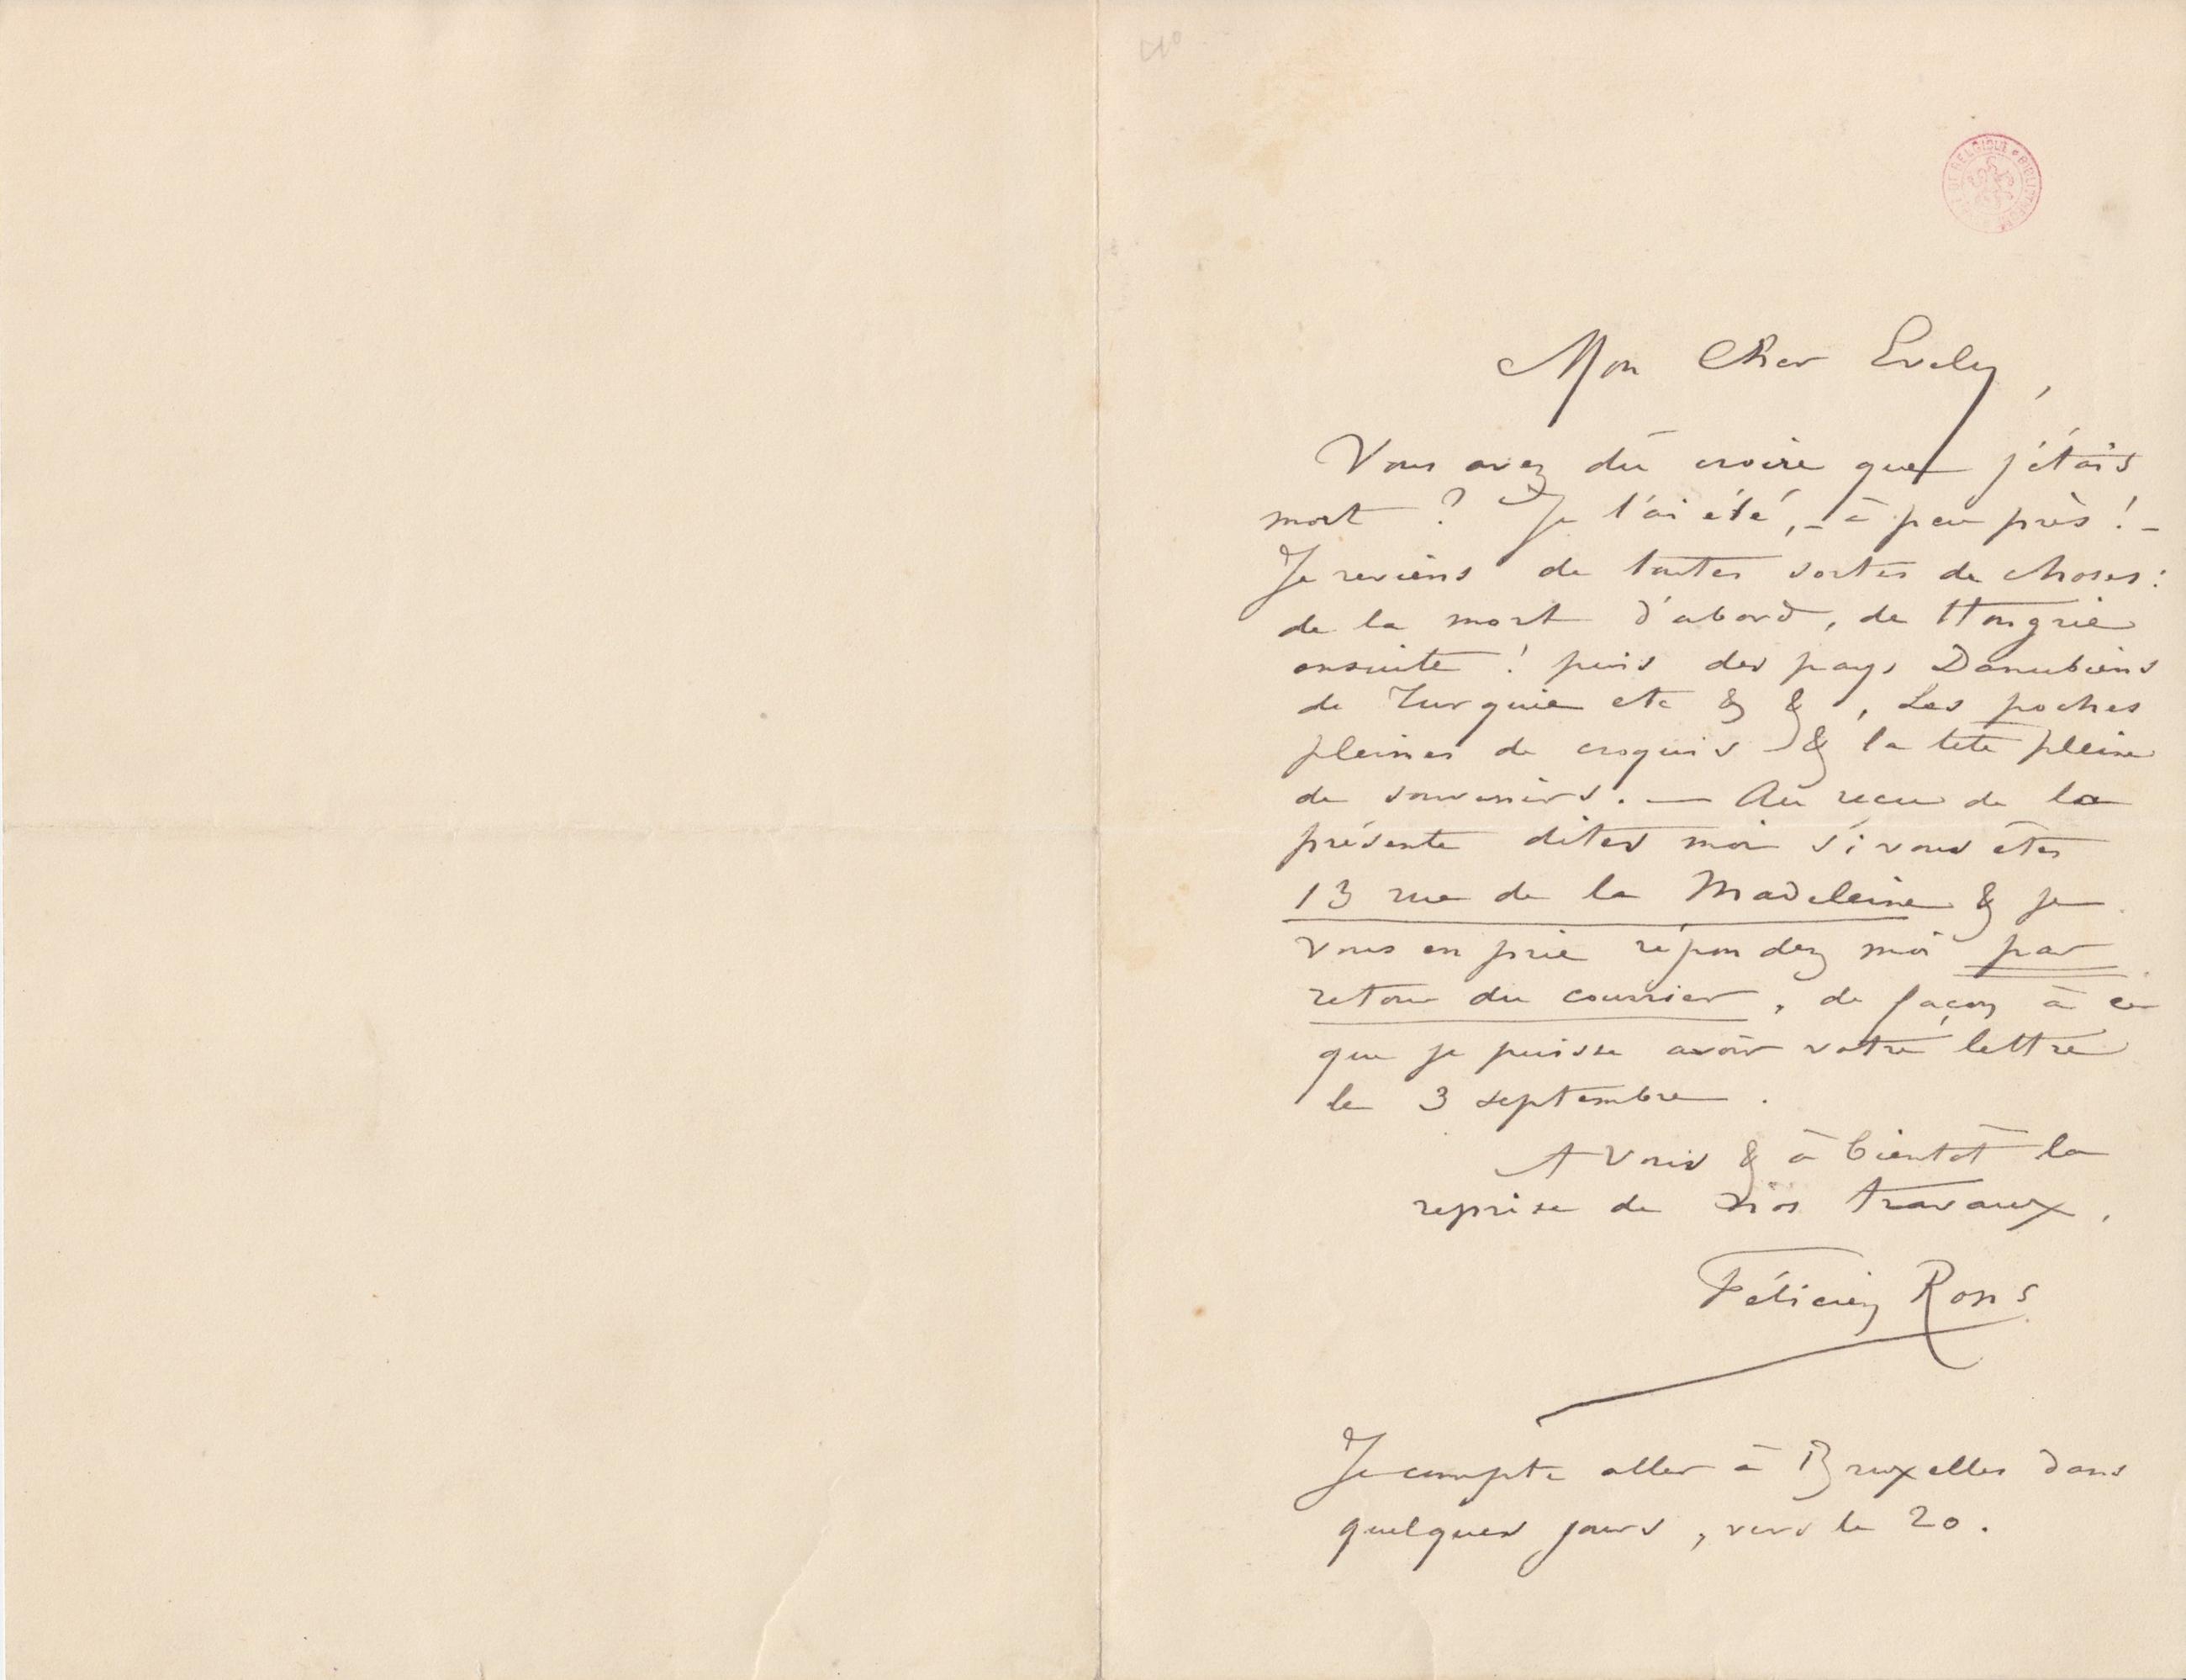 Mon Cher Evely,
Vous avez dû croire que j'étais
mort ? Je l'ai été, – à peu près ! –
Je reviens de toutes sortes de choses :
de la mort d'abord, de Hongrie
ensuite ! puis des pays Danubiens
de Turquie etc & & , Les poches
pleines de croquis & la tête pleine
de souvenirs. — Au reçu de la
présente dites moi si vous êtes
13 rue de la Madeleine & je
vous en prie répondez moi par
retour du courrier, de façon à ce
que je puisse avoir votre lettre
le 3 septembre.
A vous & à bientôt la
reprise de nos travaux.
Félicien Rops
Je compte aller à Bruxelles dans
quelques jours, vers le 20.